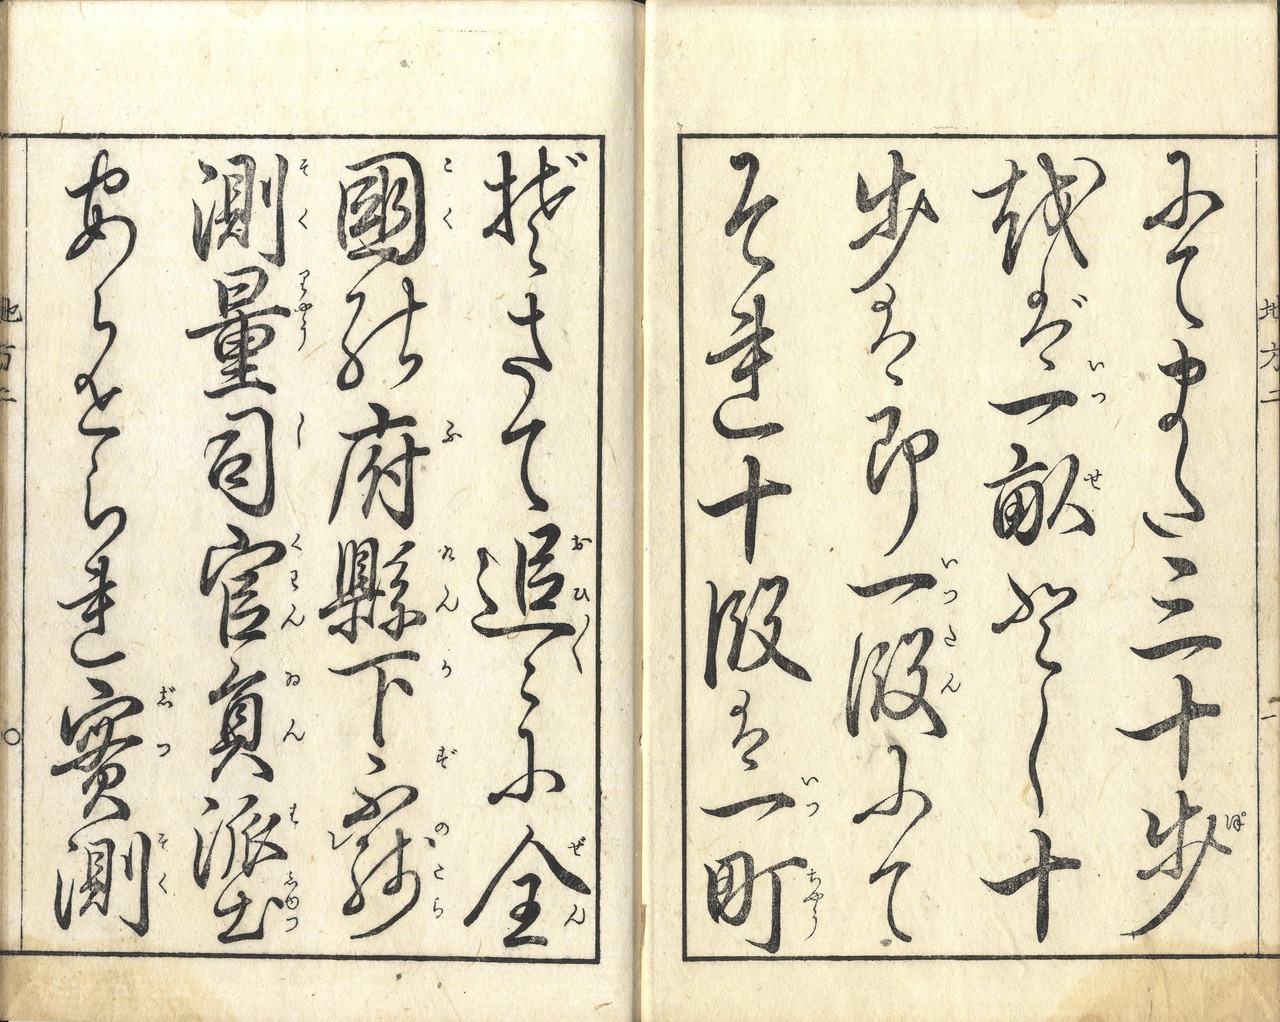 地方二
一
にてまた三十歩
ぽ
をば一畝とし十
いつ せ
歩は即一段にて
いつたん
それ十段は一町
いつちやう
ぞさて追々に全
おひ〳〵 ぜん
國の府縣下不残
こく ふ けん か ず のこら
測量司官員派出
そくりやう し くわんゐん は しゆつ
あらせられ實測
じつそく
地方二